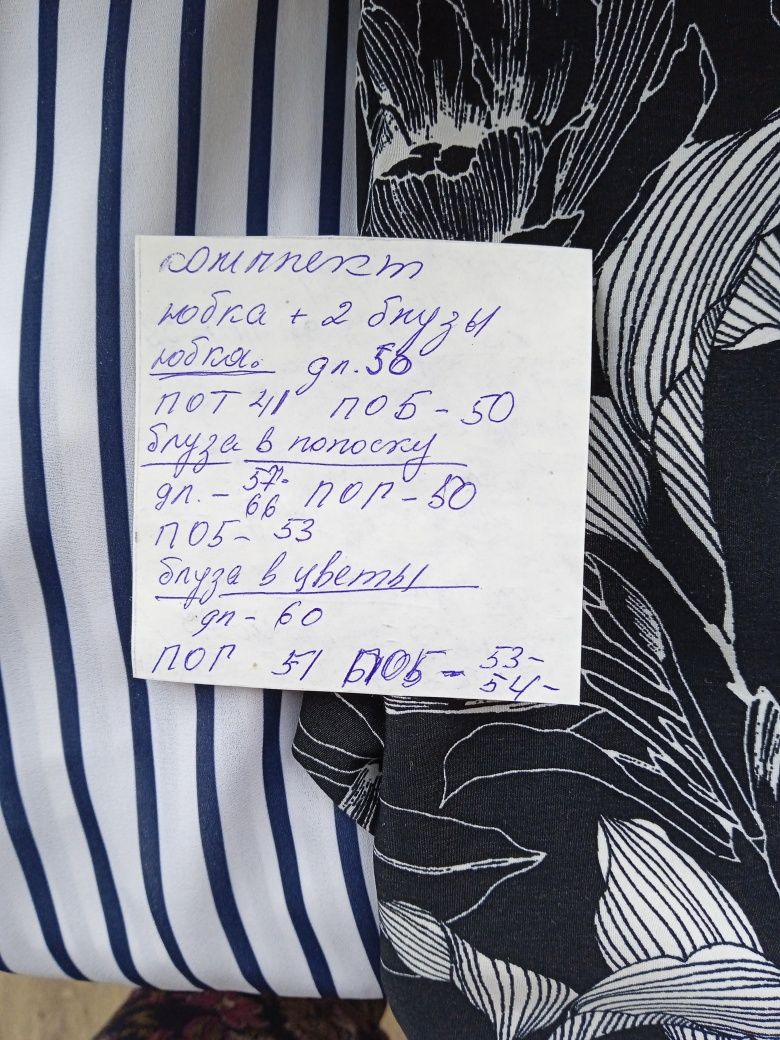 комплект
юбка + 2 блузы
юбка. дл. 56
ПОТ 41 ПОБ - 50
блуза в полоску
дл. - 57-66 ПОГ - 50
ПОБ - 53
блуза в цветы
дл - 60
ПОГ 51 ПОБ - 53-54-